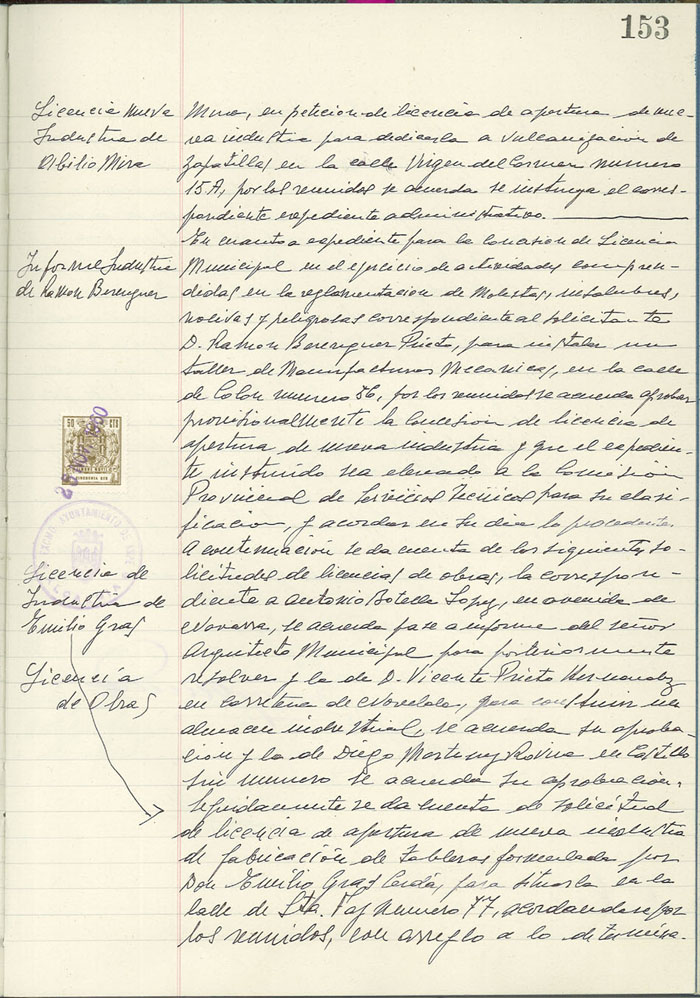 153
Licencia nueva
Industria de
Abilio Mira
Mira, en peticion de licencia de apertura de nue-
va industria para dedicarla a vulcanización de
zapatillas en la calle Virgen del Carmen numero
15A, por los reunidos se acuerda se instruya el corres-
pondiente expediente administrativo.
Informe Industria
de Ramon Berenguer
En cuanto a expediente para la Concesion de Licencia
Municipal en el ejercicio de actividades compren-
didas en la reglamentacion de Molestas, insalubres,
nocivas y peligrosas correspondiente al solicitante
D. Ramon Berenguer Prieto, para instalar un
taller de Manufacturas Mecanicas, en la calle
de Colon numero 86, por los reunidos se acuerda aprobar
provisionalmente la Concesion de licencia de
apertura de nueva industria y que el expedien-
te instruido sea elevado a la Comisión
Provincial de Servicios Tecnicos para su clasi-
ficacion, y acordar en su dia lo procedente.
50 CTS
25 NOV 1960
EXCMO. AYUNTAMIENTO DE
Licencia de
Industria de
Emilio Gras
Licencia
de Obras
A continuación se da cuenta de las siguientes so-
licitudes de licencias de obras, la correspon-
diente a Antonio Botella Lopez, en avenida de
Navarra, se acuerda pase a informe del señor
Arquitecto Municipal para posteriormente
resolver y la de D. Vicente Prieto Hernandez
en carretera de Novelda, para construir un
almacen industrial, se acuerda su aproba-
cion y la de Diego Martinez Rovira en Castillo
sin numero se acuerda su aprobación.
Seguidamente se da cuenta de solicitud
de licencia de apertura de nueva industria
de fabricación de tableros formulada por
Don Emilio Gras Cerdá, para situarla en la
calle de Sta. Faz numero 77, acordandose por
los reunidos, con arreglo a lo determina-